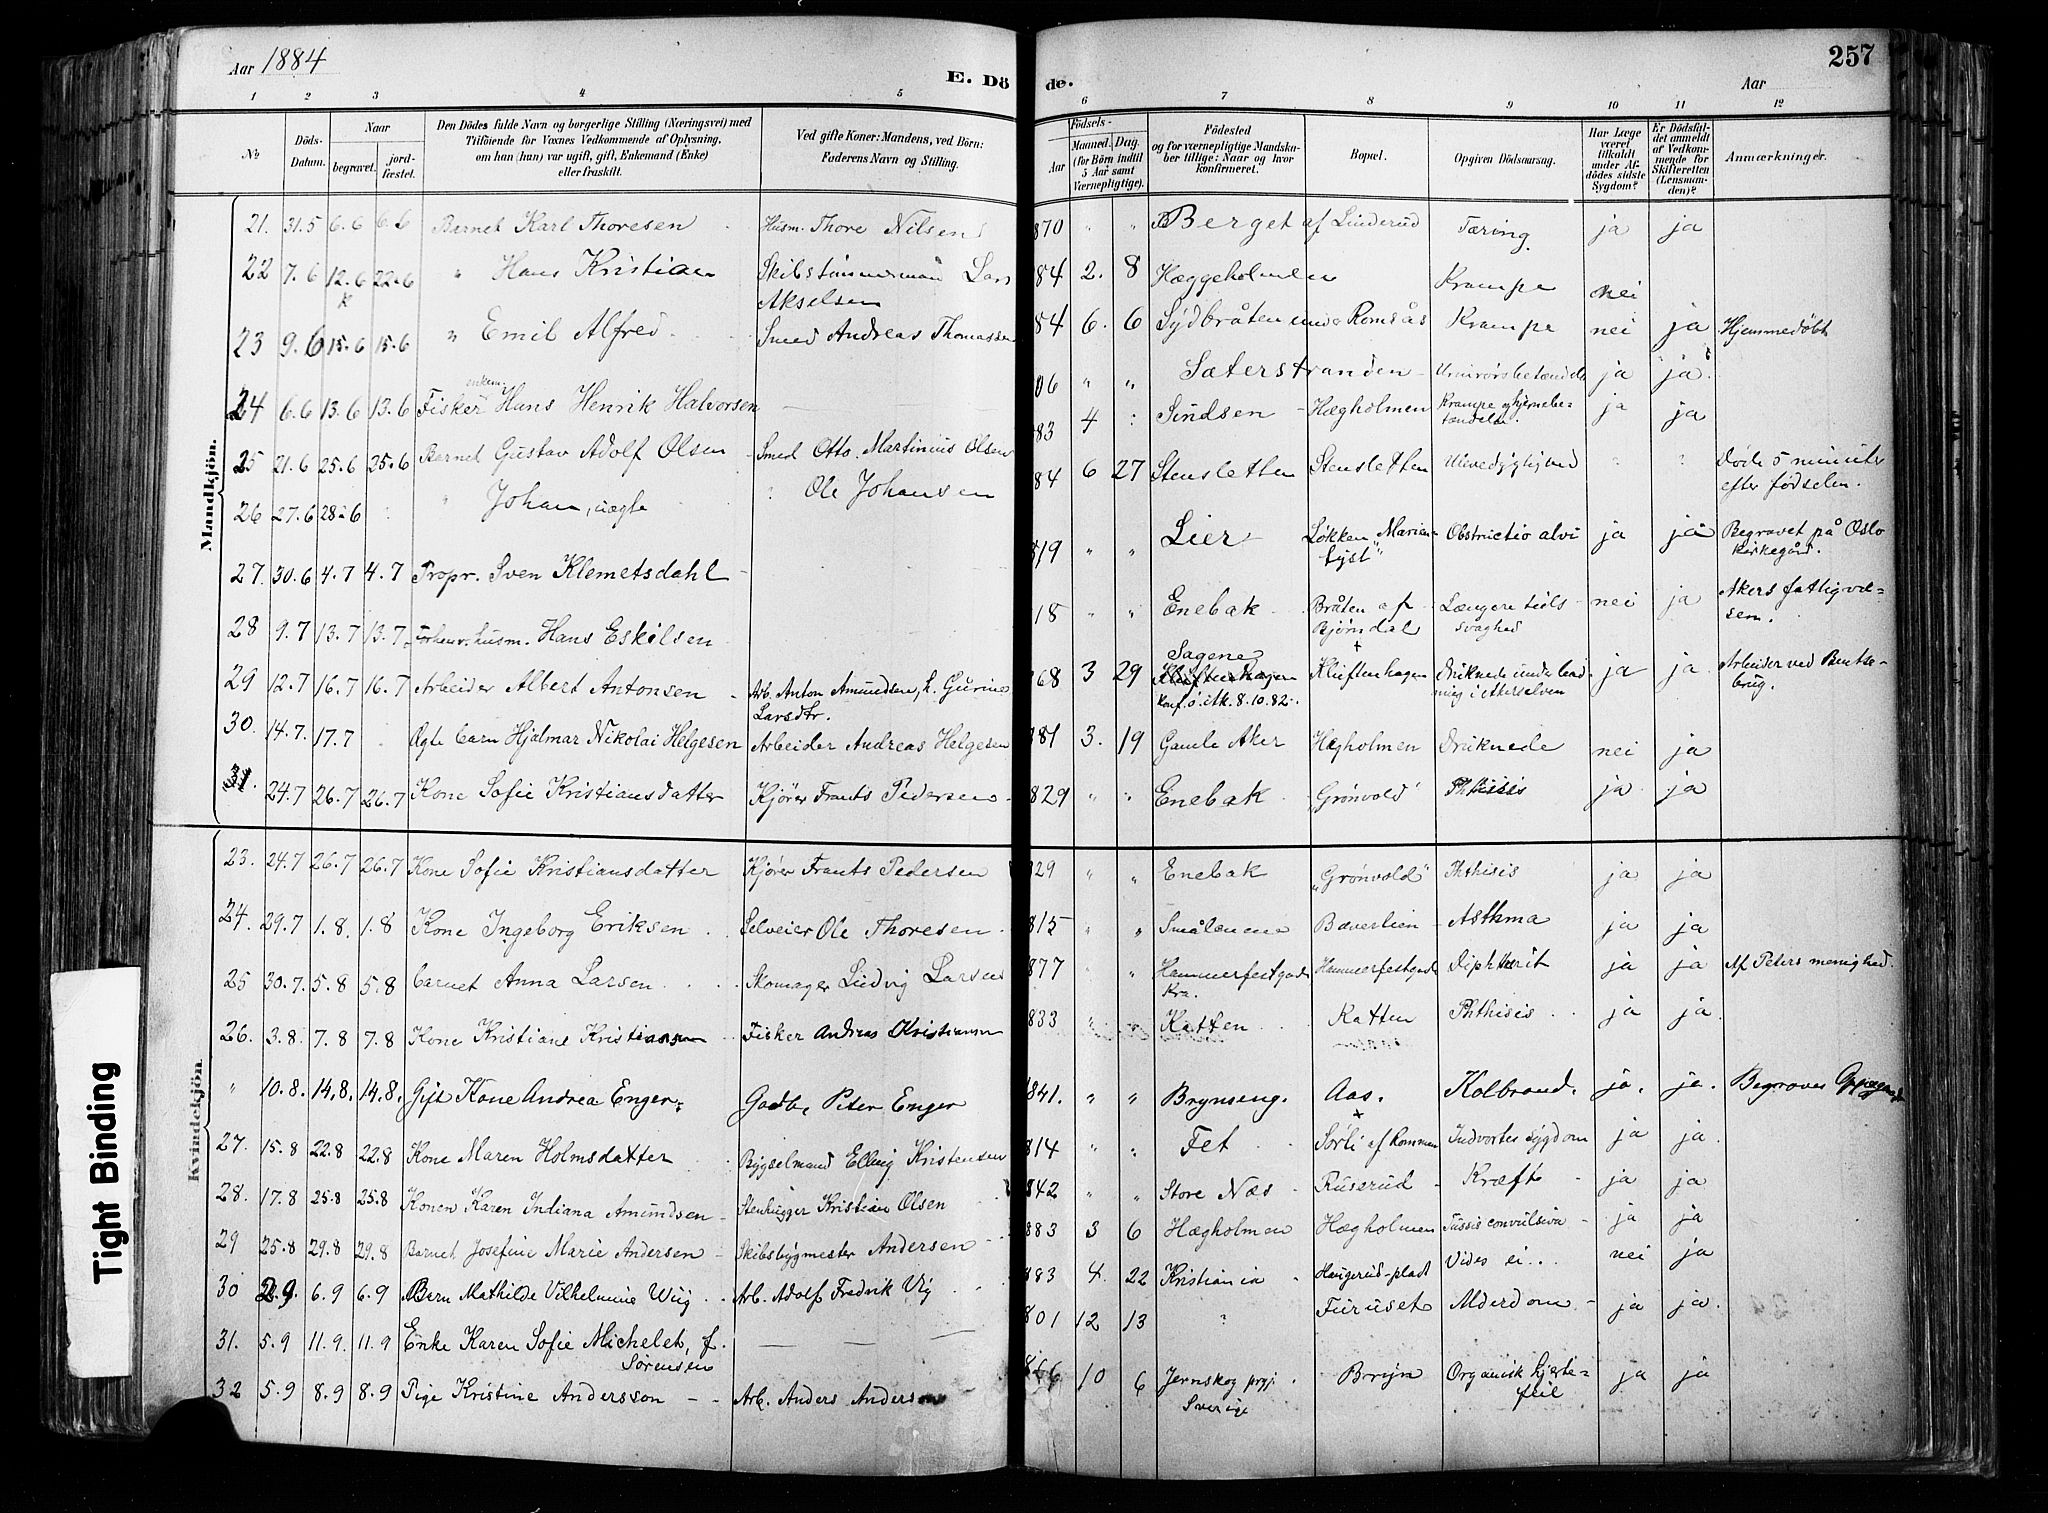 Aar 1884
E. Dö de.
Aar
257
1 2 3 4 5 6 7 8 9 10 11 12
No
Döds-Datum.
Naar
begravet.
jord-fæstet.
Den Dödes fulde Navn og borgerlige Stilling (Næringsvei) med
Tilföiende for Voxnes Vedkommende af Oplysning,
om han (hun) var ugift, gift, Enkemand (Enke)
eller fraskilt.
Ved gifte Koner: Mandens, ved Börn:
Faderens Navn og Stilling.
Födsels-
Aar
Maaned. Dag.
(for Börn indtil
5 Aar samt
Værnepligtige).
Födested
og for værnepligtige Mandska-
ber tillige: Naar og hvor
konfirmeret.
Bopæl.
Opgiven Dödsaarsag.
Har Læge
været
tilkaldt
under Af-
dödes sidste
Sygdom?
Er Dödsfal-
det anmeldt
af Vedkom-
mende for
Skifteretten
(Lensman-
den)?
Anmærkninger.
Mandkjön.
21. 31.5 6.6 6.6 Barnet Karl Thoresen Husm. Thore Nilsen 870 " " Berget af Linderud Tæring ja ja
22 7.6 12.6 22.6 " Hans Kristian Skibstømmermand Lars 84 2. 8 Hæggeholmen Krampe nei
k Akselsen
23 9.6 15.6 15.6 " Emil Alfred Smed Andreas Thomassen 84 6. 6 Sydbråten under Romsås Krampe nei ja Hjemmedøbt
enkem.
24 6.6 13.6 13.6 Fisker Hans Henrik Halvorsen — 06 " " Sæterstranden ja ja
25 21.6 25.6 25.6 Barnet Gustav Adolf Olsen Smed Otto Martinius Olsen 83 4 Sindsen Hægholmen Krampe og hjernebe-
tændelse. ja ja
26 27.6 28.6 " Johan, uægte " Ole Johansen 84 6 27 Stensletten Stensletten Ulevedygtighed Døde 5 minuter
efter fødselen.
27. 30.6 4.7 4.7 Propr. Sven Klemetsdahl 819 " " Lier Løkken "Marien-
lyst" Obstructio alvi ja ja Begravet på Oslo
kirkegård.
28 9.7 13.7 13.7 Forhenv. husm. Hans Eskilsen 18 " " Enebak Bråten af
Bjørndal Længere tids
svaghed nei ja Akers fattigvæ-
sem.
29 12.7 16.7 16.7 Arbeider Albert Antonsen Arb. Anton Amundsen, k. Gurine
Larsdtr. 868 3 29 Sagene
konf. 8.10.82. Kluftenhagen Druknede under bad-
ning i Akerselven ja ja Arbeider ved Bentse-
brug.
30. 14.7. 17.7 Ægte barn Hjalmar Nikolai Helgesen Arbeider Andreas Helgesen 881 3. 19 Gamle Aker Hægholmen Druknede nei ja
31. 24.7 26.7 26.7 Kone Sofie Kristiansdatter Kjører Frants Pedersen 829 " " Enebak "Grønvold" Phthisis ja ja
Kvindekjön
23. 24.7 26.7 26.7 Kone Sofie Kristiansdatter Kjører Frants Pedersen 829 " " Enebak "Grønvold" Phthisis ja ja
24. 29.7 1.8. 1.8 Kone Ingeborg Eriksen Selveier Ole Thoresen 815 " " Smålenene Bæverlien Asthma ja ja
25 30.7. 5.8 5.8 barnet Anna Larsen Skomager Ludvig Larsen 877 " " Hammerfestgade
Kra. Hammerfestgade Diphtherit ja ja Af Peters menighed.
26. 3.8. 7.8 7.8 Kone Kristiane Kristiansen Fisker Andreas Kristiansen 833 " " Katten Katten Phthisis ja ja
" 10.8. 14.8. 14.8. Gift Kone Andrea Enger Gadbr. Peter Enger 1841. " " Brynseng. Aas. Kolbrand. ja. ja. Begraves Oppegaard
27. 15.8 22.8 22.8 Kone Maren Holmsdatter Bygselmand Elling Kristensen 814 " " Fet Sørli af Rommen Indvortes sygdom ja ja
28. 17.8 25.8 25.8 Konen Karen Indiana Amundsen Stenhugger Kristian Olsen 842 " " Store Næs Ruserud Kræft ja ja
29 25.8 29.8 29.8 Barnet Josefine Marie Andersen Skibsbygmester Andersen 883 3 6 Hægholmen Hægholmen Tussis convulsiva ja ja
30 2.9. 6.9 6.9 Barn Mathilde Vilhelmine Wiig Arb. Adolf Fredrik Vig 883 4. 22 Kristiania Haugerud-plads Vides ei nei ja
31. 5.9 11.9. 11.9 Enke Karen Sofie Michelet, f.
Sørensen — — — 801 12 13 " Furuset Alderdom ja ja
32 5.9 8.9 8.9 Pige Kristine Andersson Arb. Anders Andersson 866 10 6 Jernskog prgj.
Sverige Bryn Organisk hjerte-
feil ja ja
Tight Binding